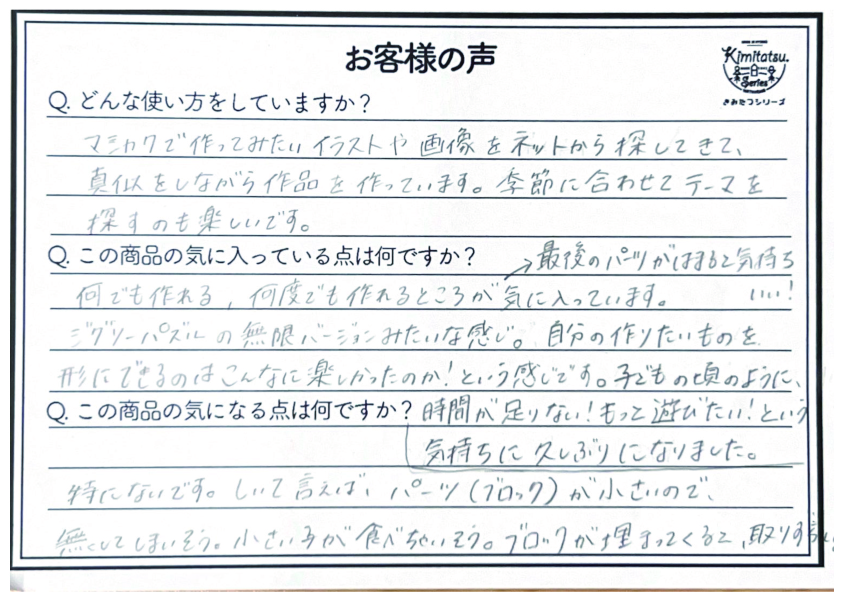 お客様の声
Kimitatsu.
Series
きみたつシリーズ
Q. どんな使い方をしていますか？
マミカクで作ってみたいイラストや画像をネットから探してきて、
真似をしながら作品を作っています。季節に合わせてテーマを
探すのも楽しいです。
Q. この商品の気に入っている点は何ですか？
→最後のパーツがはまると気持ち
いい！
何でも作れる、何度でも作れるところが気に入っています。
ジグソーパズルの無限バージョンみたいな感じ。自分の作りたいものを
形にできるのはこんなに楽しかったのか！という感じです。子どもの頃のように、
Q. この商品の気になる点は何ですか？
時間が足りない！もっと遊びたい！という
気持ちに久しぶりになりました。
特にないです。しいて言えば、パーツ(ブロック)が小さいので、
無くしてしまいそう。小さい子が食べちゃいそう。ブロックが埋まってくると、取りづらい